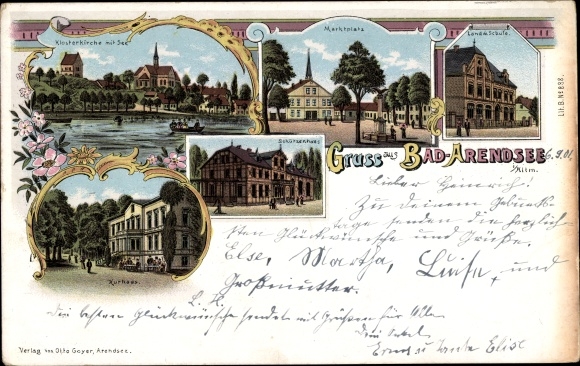 Klosterkirche mit See.
Marktplatz
Landw. Schule.
Lit. B. No 898.
Schützenhaus
Gruss aus Bad-Arendsee
i/Altm.
6.9.01.
Kurhaus.
Lieber Heinrich!
Zu deinem Geburts-
tage senden die herzlich-
sten Glückwünsche und Grüße.
Else, Martha, Luise, und
Großmutter.
Die besten Glückwünsche sendet mit Grüßen für Alle
Dein Onkel
Ernst u Tante Elise
Verlag von Otto Goyer, Arendsee.